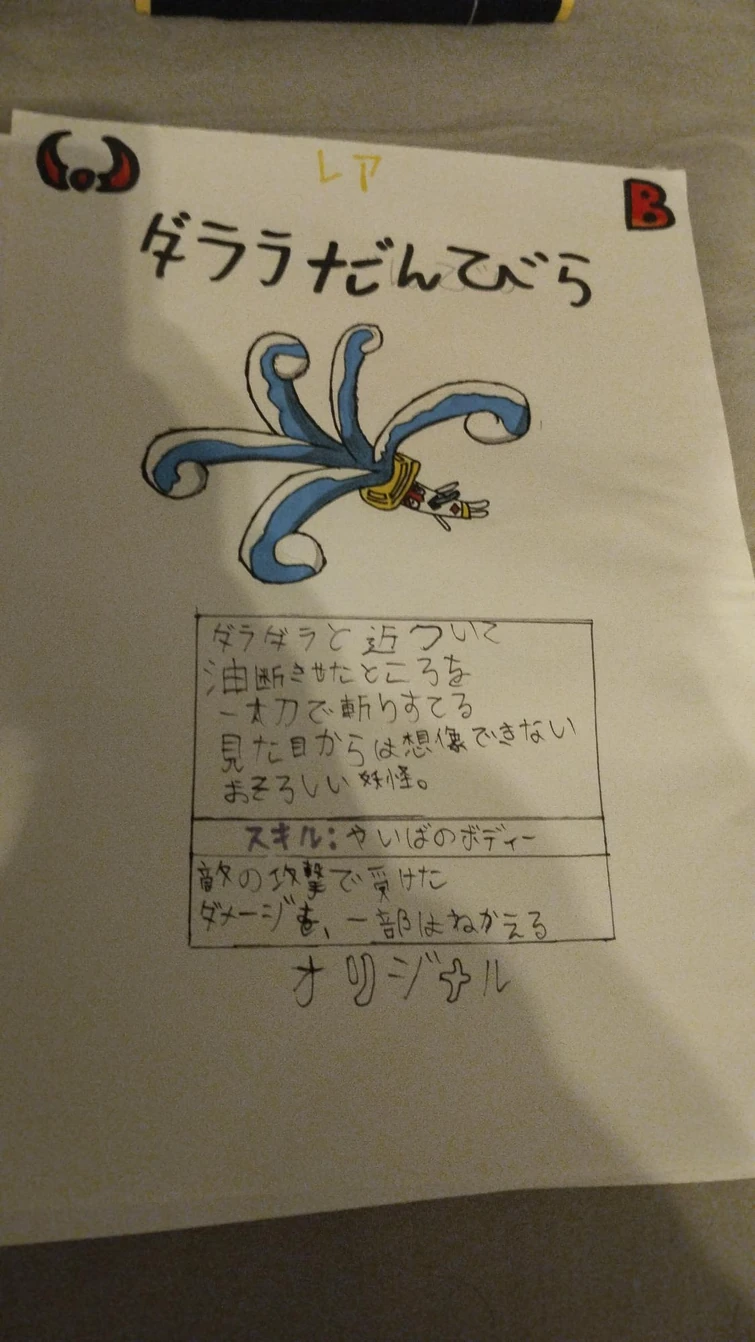 レア
B
ダララだんびら
ダラダラと近づいて
油断させたところを
一太刀で斬りすてる
見た目からは想像できない
おそろしい妖怪。
スキル:やいばのボディー
敵の攻撃で受けた
ダメージを、一部はねかえる
オリジナル